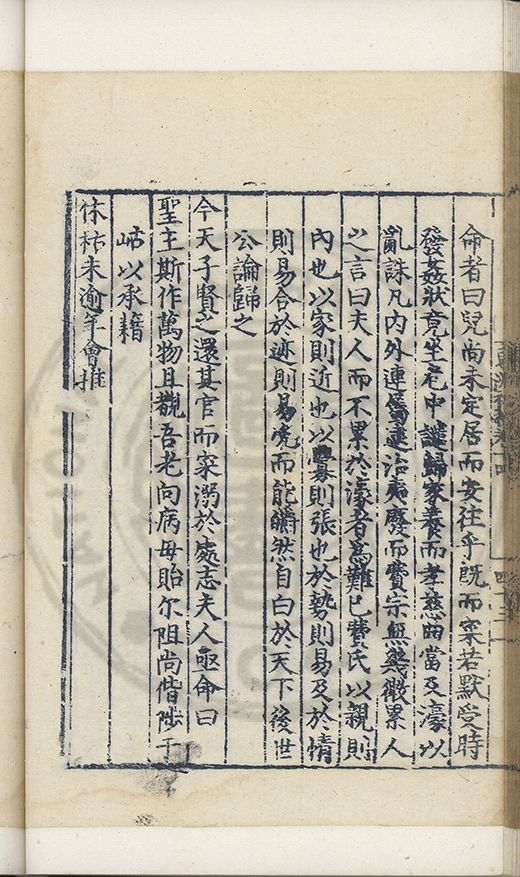 命者曰兒尚未定居而安往乎既而寀若默受時
發姦狀竟坐宅中謹歸家養而孝慈兩當及濠以
亂誅凡內外連屬逮治夷廢而費宗無與微累人
之言曰夫人而不累於濠者為難已費氏以親則
內也以家則近也以募則張也於勢則易及於情
則易合於迹則易冤而能皭然自白於天下後世
公論歸之
今天子賢之還其官而寀溺於處志夫人亟命曰
聖主斯作萬物且覩吾老向病毋貽尔阻尚偕陟于
以承籍
休祜未逾年會推